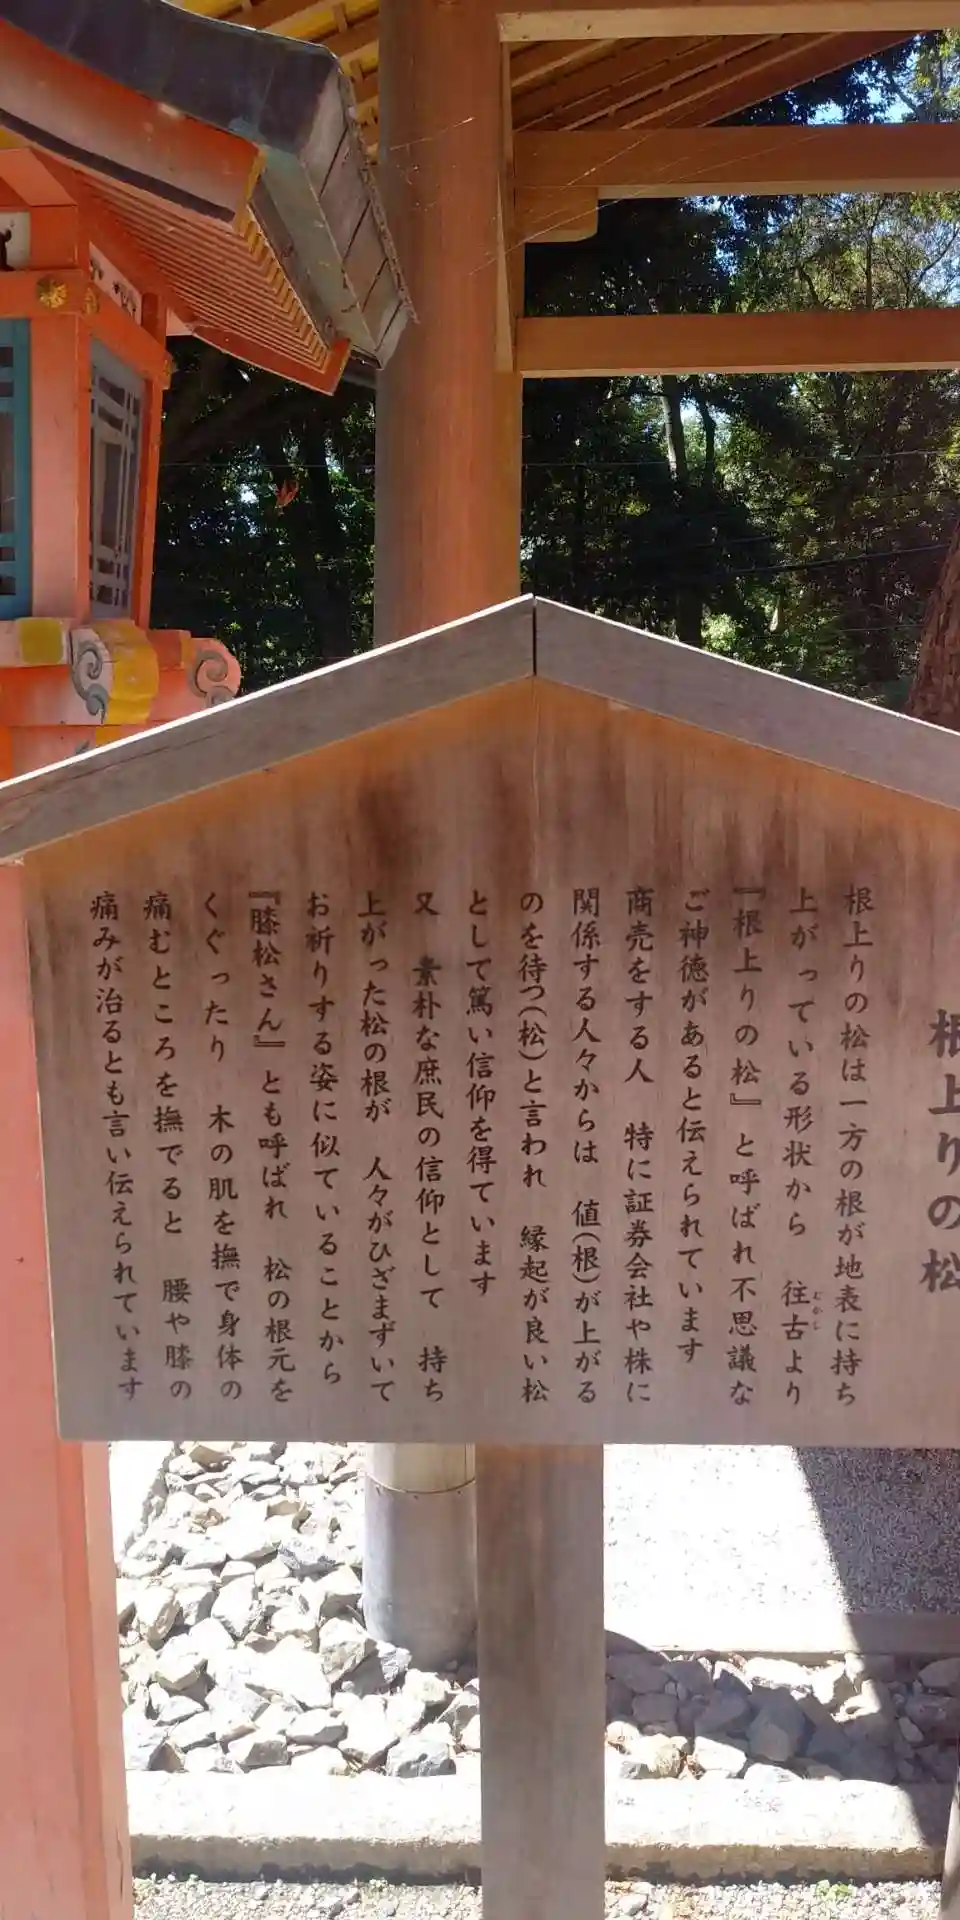 根上りの松
根上りの松は一方の根が地表に持ち
上がっている形状から 往古より
むかし
『根上りの松』と呼ばれ不思議な
ご神徳があると伝えられています
商売をする人 特に証券会社や株に
関係する人々からは 値(根)が上がる
のを待つ(松)と言われ 縁起が良い松
として篤い信仰を得ています
又 素朴な庶民の信仰として 持ち
上がった松の根が 人々がひざまずいて
お祈りする姿に似ていることから
『膝松さん』とも呼ばれ 松の根元を
くぐったり 木の肌を撫で身体の
痛むところを撫でると 腰や膝の
痛みが治るとも言い伝えられています